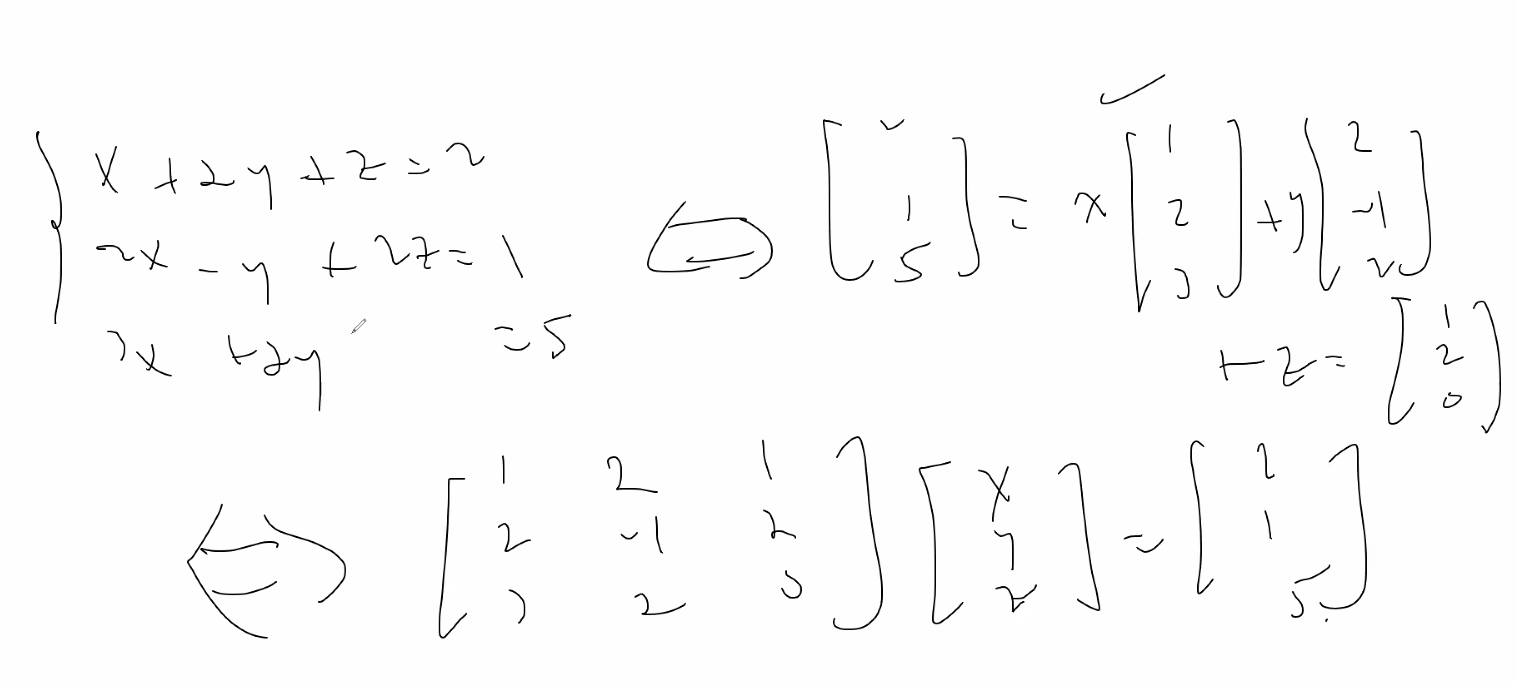 { x + 2y + z = 2
2x - y + 2z = 1
3x + 2y = 5
⇔ [2 1 5] = x [1 2 3] + y [2 -1 2]
+ z = [1 2 0]
⇔ [1 2 1
2 -1 2
3 2 0] [x y z] = [2 1 5]